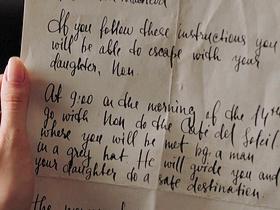 If you follow these instructions you
will be able to escape with your
daughter, Non.
At 9:00 in the morning of the 14th
go with Non to the Café del Soleil
where you will be met by a man
in a grey hat. He will guide you and
your daughter to a safe destination.